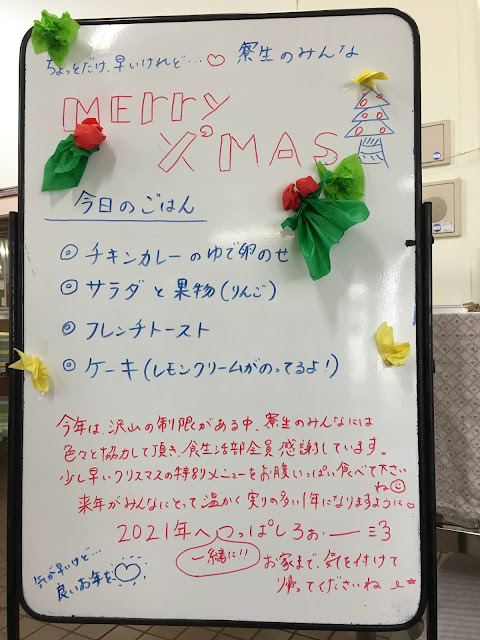 ちょっとだけ、早いけれど…♡ 寮生のみんな
MErry
X'MAS
今日のごはん
◎ チキンカレーのゆで卵のせ
◎ サラダと果物(りんご)
◎ フレンチトースト
◎ ケーキ(レモンクリームがのってるよ!)
今年は、沢山の制限がある中、寮生のみんなには
色々と協力して頂き、食生活部全員感謝しています。
少し早いクリスマスの特別メニューをお腹いっぱい食べて下さい
ね☺
来年がみんなにとって温かく実りの多い1年になりますように♡
2021年へつっぱしろぉー三3
一緒に!!
お家まで、気を付けて
帰ってくださいね
気が早いけど…
良いお年を♡